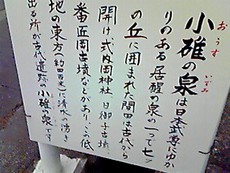 小碓の泉は日本武尊にゆか
おうす いずみ
りのある居醒の泉の一つで七ツ
の丘に囲まれた間田は古代から
開け、式内岡神社 日御子古墳
番匠岡古墳などがあり、この低
地の東方(約四百米)に清水の湧き
出る所が古代遺跡の小碓の泉です